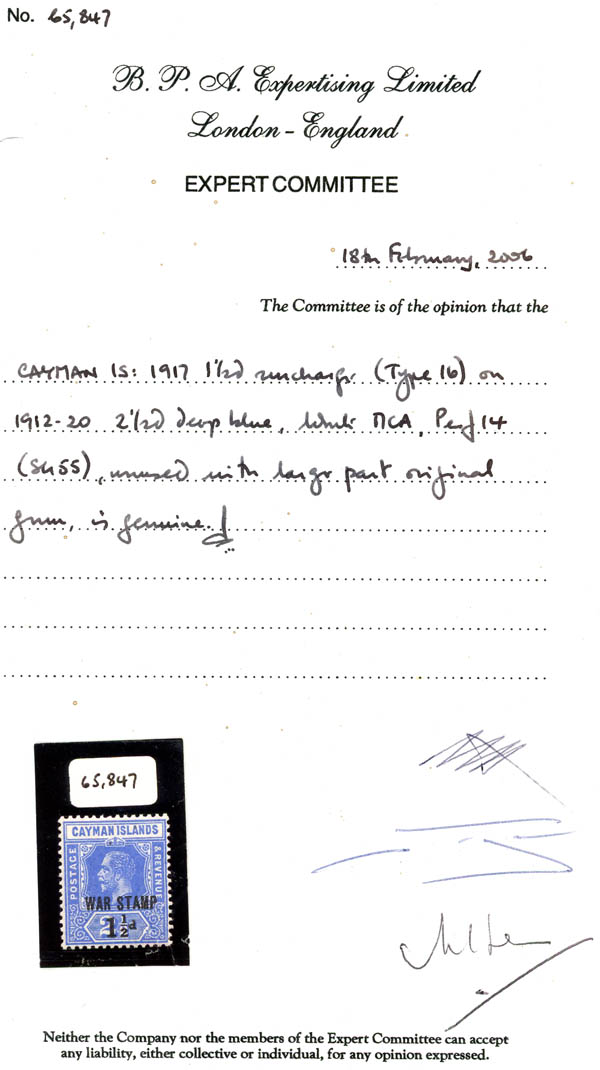 No. 65,847
B. P. A. Expertising Limited
London - England
EXPERT COMMITTEE
18th February, 2006
The Committee is of the opinion that the
CAYMAN IS: 1917 1½d surcharge (Type 16) on
1912-20 2½d deep blue, Wmk MCA, Perf 14
(SG55), unused with large part original
gum, is genuine.
65,847
CAYMAN ISLANDS
POSTAGE
& REVENUE
WAR STAMP
1½d
Neither the Company nor the members of the Expert Committee can accept
any liability, either collective or individual, for any opinion expressed.